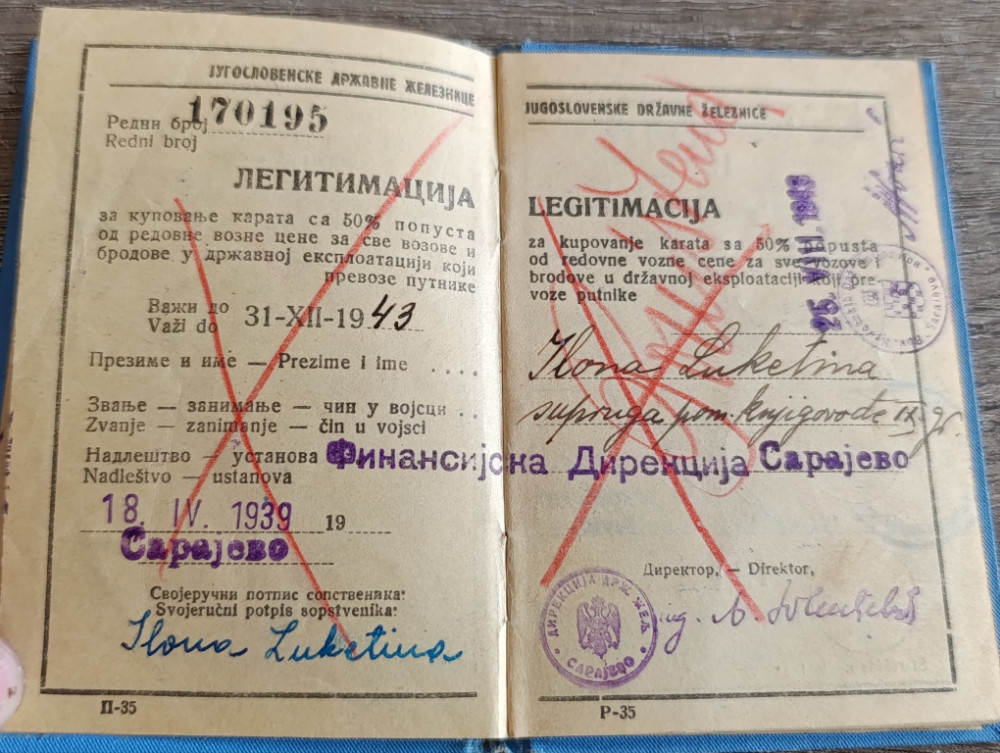 ЈУГОСЛОВЕНСКЕ ДРЖАВНЕ ЖЕЛЕЗНИЦЕ
Редни број 170195
Redni broj
ЛЕГИТИМАЦИЈА
за куповање карата са 50% попуста
од редовне возне цене за све возове и
бродове у државној експлоатацији који
превозе путнике
Важи до
Važi do 31-XII-1943
Презиме и име — Prezime i ime ....
Звање — занимање — чин у војсци ..
Zvanje — zanimanje — čin u vojsci
Надлештво — установа
Nadleštvo — ustanova
18. IV. 1939 19
Сарајево
Својеручни потпис сопственика:
Svojeručni potpis sopstvenika:
Ilona Luketina
П-35
JUGOSLOVENSKE DRŽAVNE ŽELEZNICE
LEGITIMACIJA
za kupovanje karata sa 50% popusta
od redovne vozne cene za sve vozove i
brodove u državnoj eksploataciji koji pre-
voze putnike
25. VIII. 1943
Ilona Luketina
supruga pom. knjigovođe IX. gr.
Финансијска Дирекција Сарајево
Директор, — Direktor,
ДИРЕКЦИЈА ДРЖ. ЖЕЉ.
САРАЈЕВО
P-35